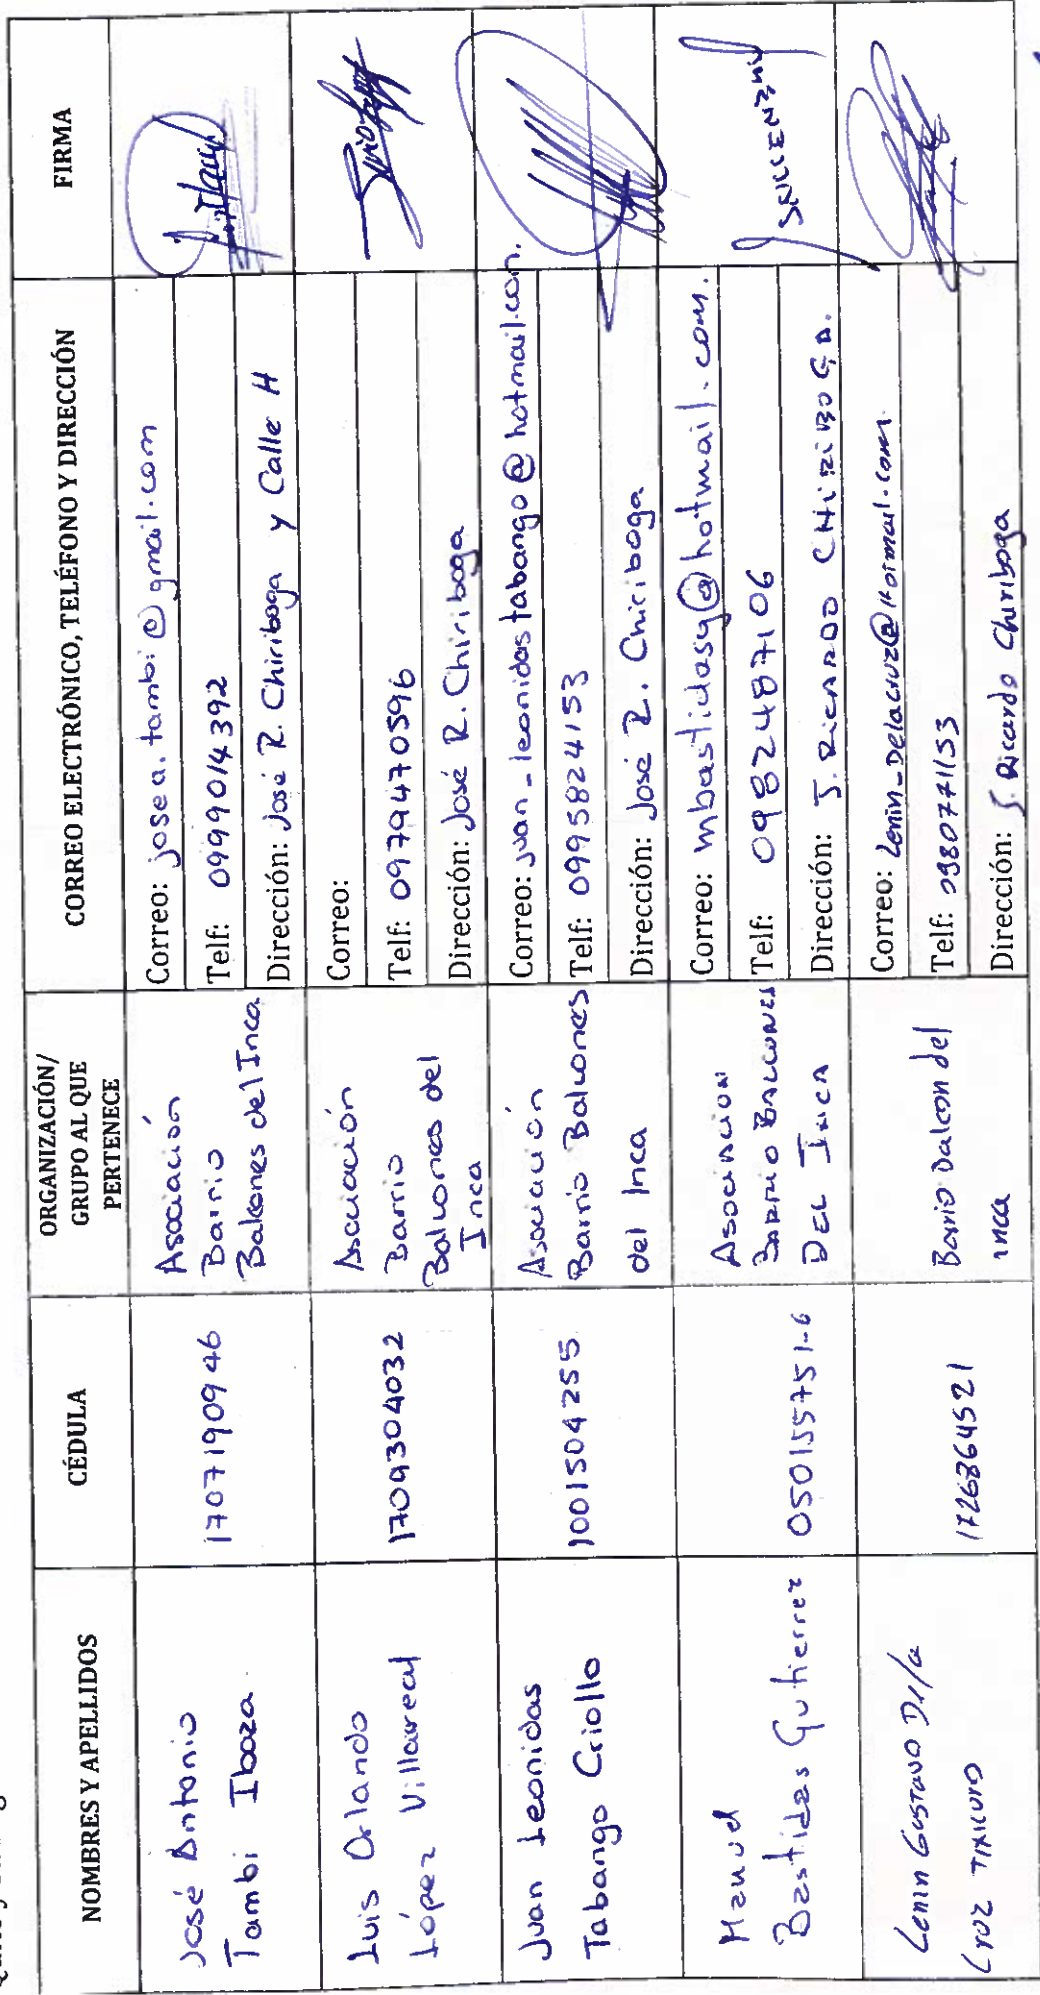 NOMBRES Y APELLIDOS
CÉDULA
ORGANIZACIÓN/
GRUPO AL QUE
PERTENECE
CORREO ELECTRÓNICO, TELÉFONO Y DIRECCIÓN
FIRMA
José Antonio
Tambi Ibaza
1707190946
Asociación
Barrio
Balcones del Inca
Correo: josea.tambi@gmail.com
Telf: 0999014392
Dirección: José R. Chiriboga y Calle H
Luis Orlando
López Villareal
1709304032
Asociación
Barrio
Balcones del
Inca
Correo:
Telf: 0979470596
Dirección: José R. Chiriboga
Juan Leonidas
Tabango Criollo
1001504255
Asociación
Barrio Balcones
del Inca
Correo: juan_leonidastabango@hotmail.com.
Telf: 0995824153
Dirección: José R. Chiriboga
Manuel
Bastidas Gutierrez
050155751-6
Asociacion
Barrio Balcones
Del Inca
Correo: mbastidasg@hotmail.com.
Telf: 0982487106
Dirección: J. Ricardo CHiRiBOGA.
Lenin Gustavo De la
Cruz Tixicuro
1726864521
Barrio Balcon del
inca
Correo: Lenin_Delacruz@Hotmail.com.
Telf: 0980771153
Dirección: J. Ricardo Chiriboga